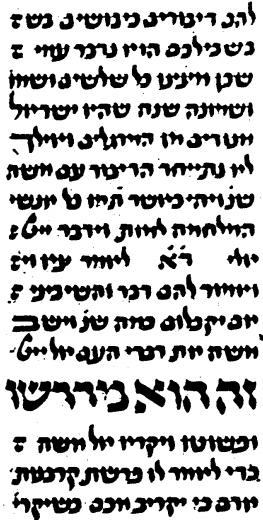 להם דיבורים כיבושים בש :
בשבילכם הוא נדבר עמי :
שכן מצינו כל שלשים ושמו
ושמונה שנה שהיו ישראל
מנודים מן המרגלים ואילך
לא נתייחד הדיבור עם משה
שנ' ויהי כאשר תמו כל אנשי
המלחמה למות וידבר ייי :
אלי ד"א לאמר צא וא :
ואמור להם דבר והשיביני :
אם יקבלום כמה שנ' וישב
משה את דברי העם אל ייי
זה הוא מדרשו
ופשוטו ויקרא אל משה :
כדי לאמר לו פרשת קרבנות
אדם כי יקריב מכם כשיקרי